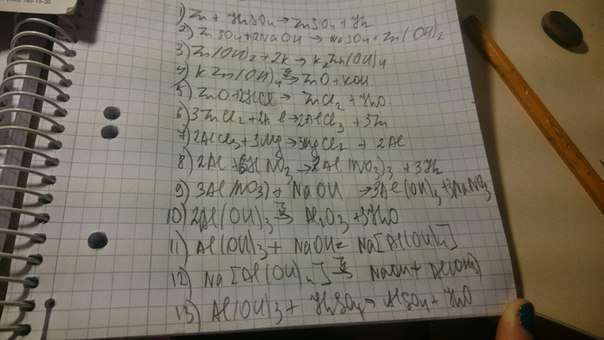 1) Zn + H2SO4 → ZnSO4 + H2
2) ZnSO4 + 2NaOH → Na2SO4 + Zn(OH)2
3) Zn(OH)2 + 2K → K2Zn(OH)4
4) K Zn(OH)4 → ZnO + KOH
5) ZnO + 2HCl → ZnCl2 + H2O
6) 3ZnCl2 + 2Al → 2AlCl3 + 3Zn
7) 2AlCl3 + 3Mg → 3MgCl2 + 2Al
8) 2Al + 6HNO3 → 2Al(NO3)3 + 3H2
9) 3Al(NO3) + NaOH → 3Al(OH)3 + 3NaNO3
10) 2Al(OH)3 → Al2O3 + 3H2O
11) Al(OH)3 + NaOH = Na[Al(OH)4]
12) Na[Al(OH)4] → NaOH + Al(OH)3
13) Al(OH)3 + H2SO4 → AlSO4 + H2O